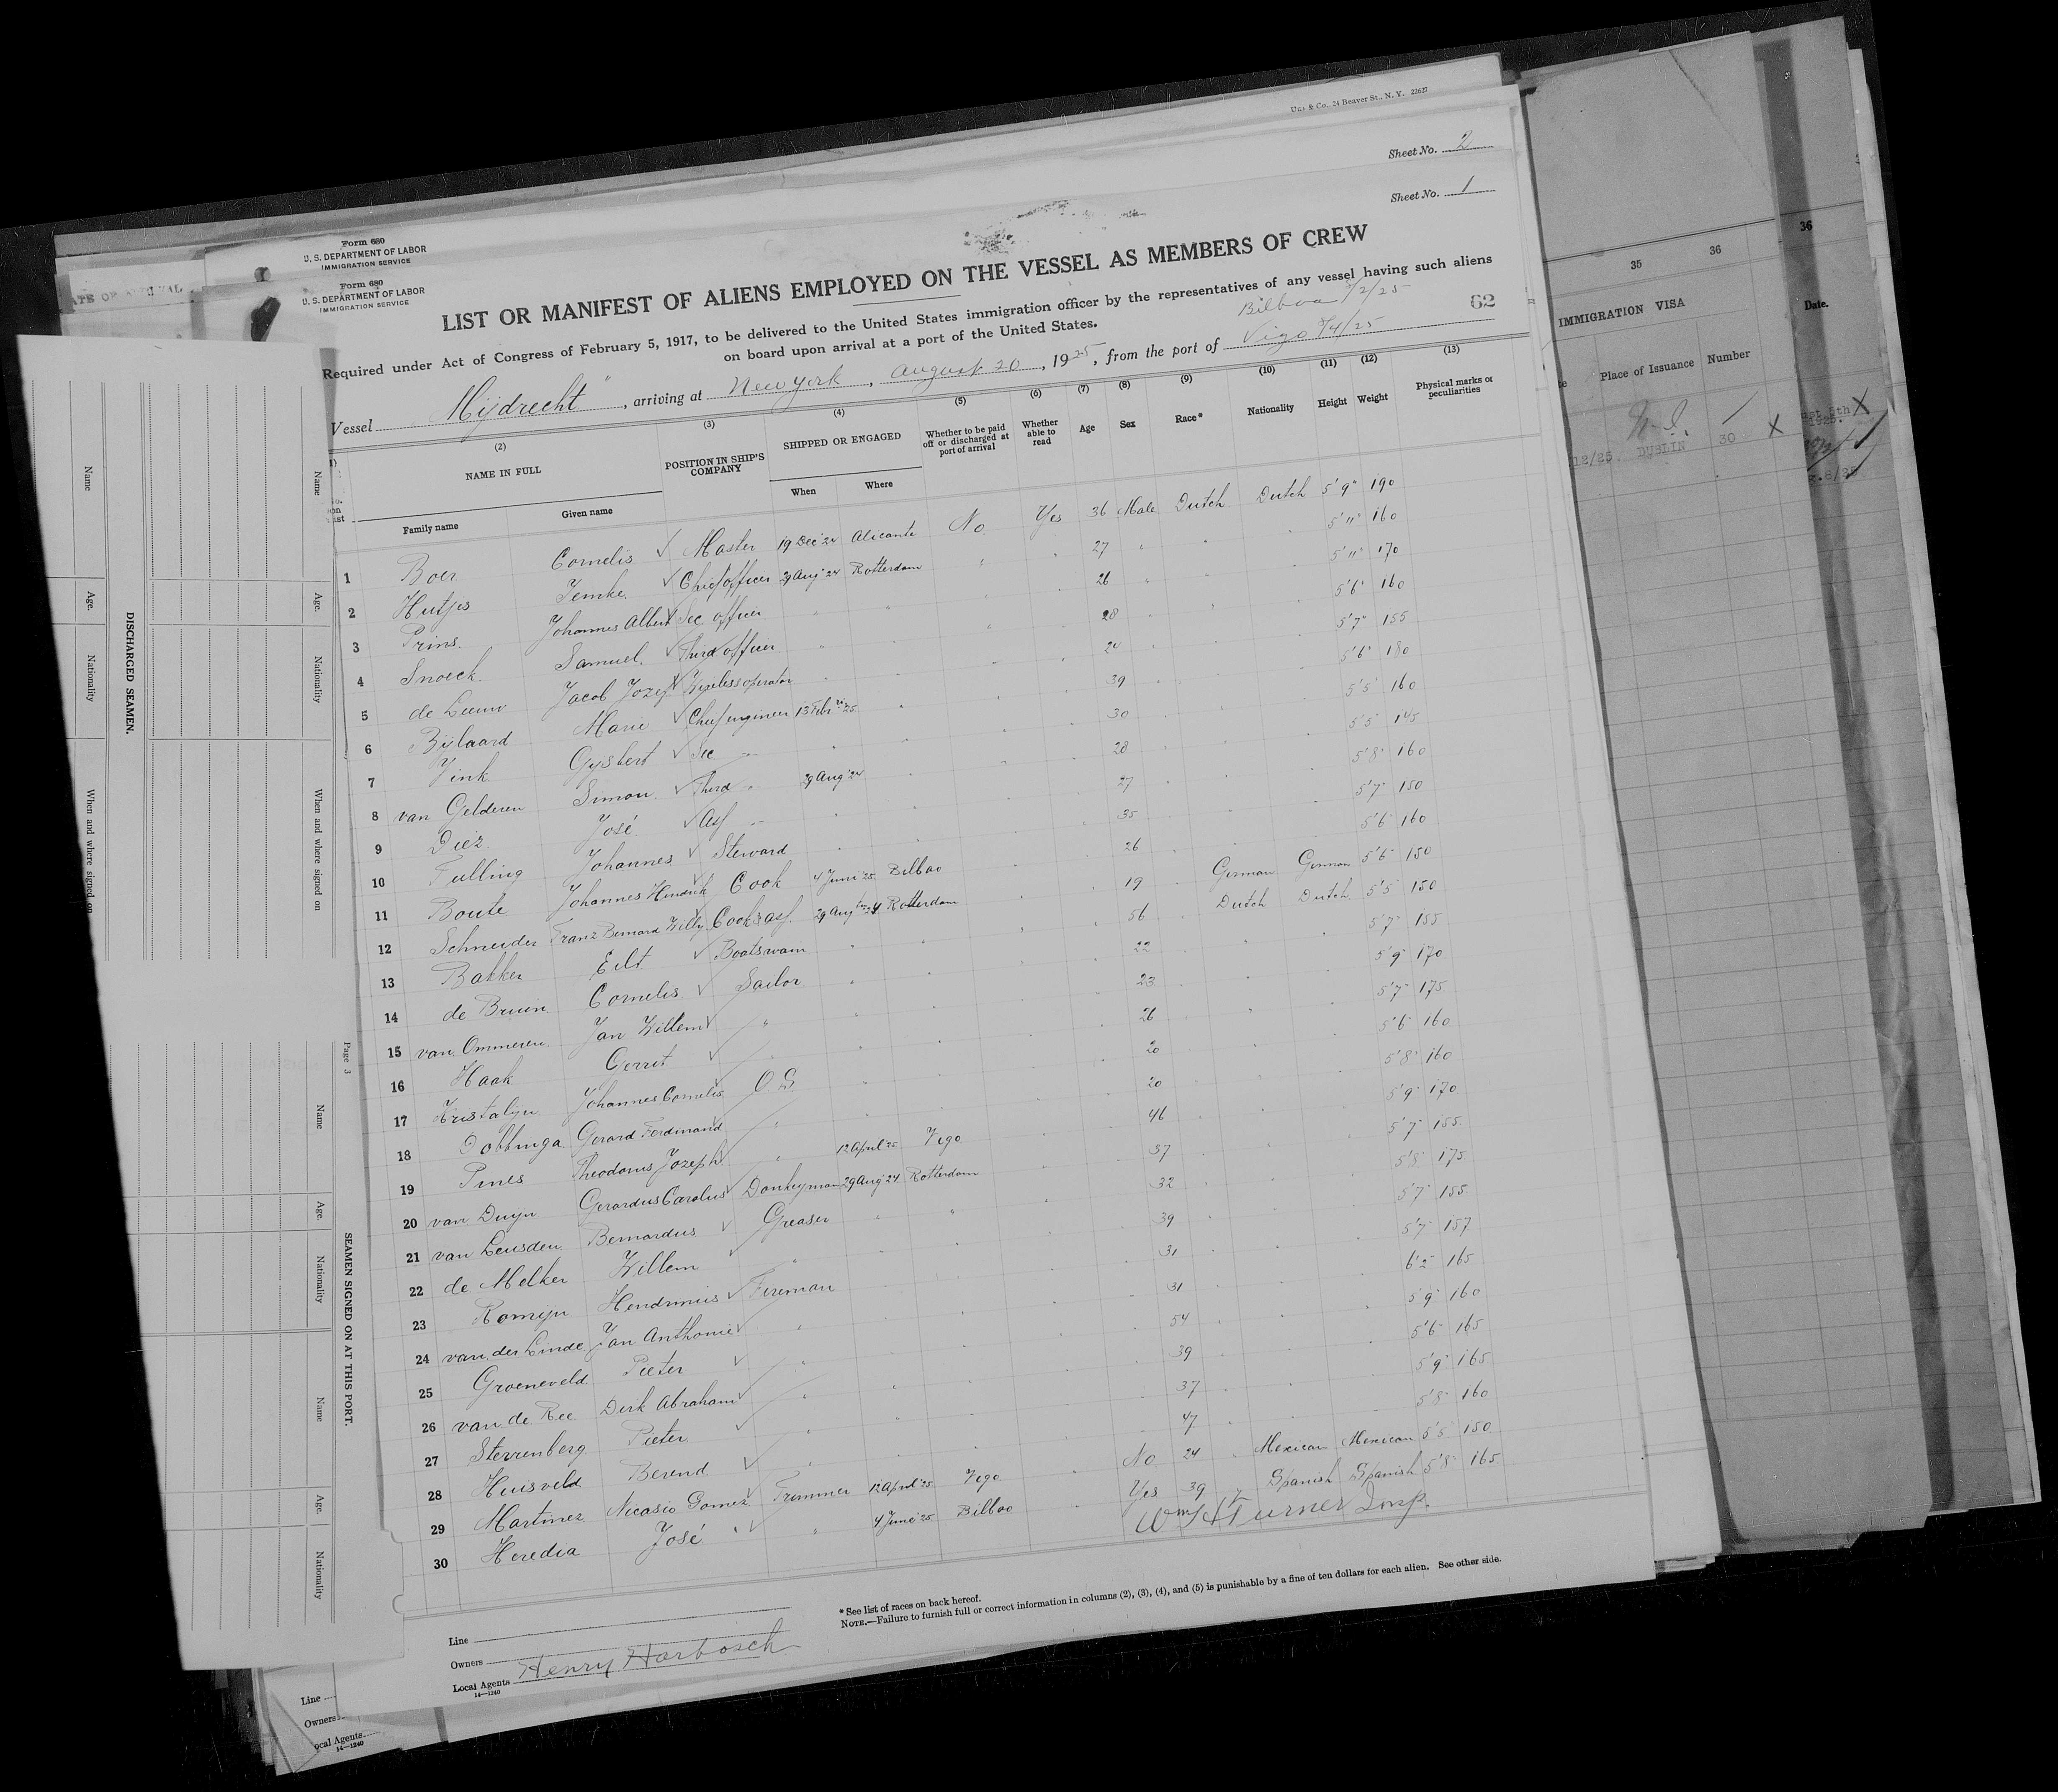 Uns & Co., 24 Beaver St., N. Y. 22627
Sheet No. 2
Sheet No. 1
Form 680
U. S. DEPARTMENT OF LABOR
IMMIGRATION SERVICE
Form 680
U. S. DEPARTMENT OF LABOR
IMMIGRATION SERVICE
LIST OR MANIFEST OF ALIENS EMPLOYED ON THE VESSEL AS MEMBERS OF CREW
Required under Act of Congress of February 5, 1917, to be delivered to the United States immigration officer by the representatives of any vessel having such aliens
on board upon arrival at a port of the United States.
Bilboa 8/2/25
62
Vessel Mijdrecht", arriving at New York, August 20, 1925, from the port of Vigo 8/4/25
(2) (3) (4) (5) (6) (7) (8) (9) (10) (11) (12) (13)
NAME IN FULL POSITION IN SHIP'S COMPANY SHIPPED OR ENGAGED Whether to be paid off or discharged at port of arrival Whether able to read Age Sex Race* Nationality Height Weight Physical marks or peculiarities
Family name Given name When Where
1 Boer Cornelis ✓ Master 19 Dec '24 Alicante No Yes 36 Male Dutch Dutch 5'9" 190
2 Hutjes Jemke ✓ Chief officer 29 Aug '24 Rotterdam " " 27 " " " 5'11" 160
3 Prins Johannes Albert ✓ Sec officer " " " " 26 " " " 5'11" 170
4 Snoeck Samuel ✓ Third officer " " " " 28 " " " 5'6" 160
5 de Leeuw Jacob Jozef ✓ Wireless operator " " " " 24 " " " 5'7" 155
6 Bijlaard Marie ✓ Chief engineer 13 Febr '25 " " " 39 " " " 5'6" 180
7 Vink Gysbert ✓ Sec " " " " " 30 " " " 5'5" 160
8 van Gelderen Simon ✓ Third " 29 Aug '24 " " " 28 " " " 5'5" 145
9 Diez José ✓ Ass " " " " " 27 " " " 5'8" 160
10 Tulling Johannes ✓ Steward " " " " 35 " " " 5'7" 150
11 Boute Johannes Hendrik ✓ Cook 4 Juni '25 Bilbao " " 26 " " " 5'6" 160
12 Schneider Franz Bernard Willy Cooks ass. 29 Aug '24 Rotterdam " " 19 " German German 5'6" 150
13 Bakker Eilt ✓ Boatswain " " " " 56 " Dutch Dutch 5'5" 150
14 de Bruin Cornelis ✓ Sailor " " " " 22 " " " 5'7" 155
15 van Ommeren Jan Willem ✓ " " " " " 23 " " " 5'9" 170
16 Haak Gerrit ✓ " " " " " 26 " " " 5'7" 175
17 Kristalijn Johannes Cornelis O.S. " " " " 20 " " " 5'6" 160
18 Dobbinga Gerard Ferdinand " " " " " 20 " " " 5'8" 160
19 Pines Theodorus Jozeph " 12 April '25 Vigo " " 46 " " " 5'9" 170
20 van Duyn Gerardus Carolus ✓ Donkeyman 29 Aug '24 Rotterdam " " 37 " " " 5'7" 155
21 van Leusden Bernardus ✓ Greaser " " " " 32 " " " 5'8" 175
22 de Melker Willem ✓ " " " " " 39 " " " 5'7" 155
23 Romeyn Hendrinus ✓ Fireman " " " " 31 " " " 5'7" 157
24 van der Linde Jan Anthonie ✓ " " " " " 31 " " " 6'2" 165
25 Groeneveld Pieter ✓ " " " " " 54 " " " 5'9" 160
26 van de Ree Dirk Abraham ✓ " " " " " 39 " " " 5'6" 165
27 Sterrenberg Pieter ✓ " " " " " 37 " " " 5'9" 165
28 Huisveld Berend ✓ " " " " " 47 " " " 5'8" 160
29 Martinez Nicasio Gomez Trimmer 12 April '25 Vigo " No 24 " Mexican Mexican 5'5" 150
30 Heredia José ✓ " 4 Juni '25 Bilbao " Yes 39 " Spanish Spanish 5'8" 165
Wm H Turner Insp.
* See list of races on back hereof.
NOTE.—Failure to furnish full or correct information in columns (2), (3), (4), and (5) is punishable by a fine of ten dollars for each alien. See other side.
Line
Owners
Local Agents Henry Harbosch
14—1240
Line
Owners
Local Agents
14—1240
DISCHARGED SEAMEN.
Name Age. Nationality When and where signed on
Name Age. Nationality When and where signed on
Page 3
SEAMEN SIGNED ON AT THIS PORT.
Name Age. Nationality Name Age. Nationality
35 36
36
IMMIGRATION VISA
Date.
Place of Issuance Number
12/25 DUBLIN 30 X
X
1925.